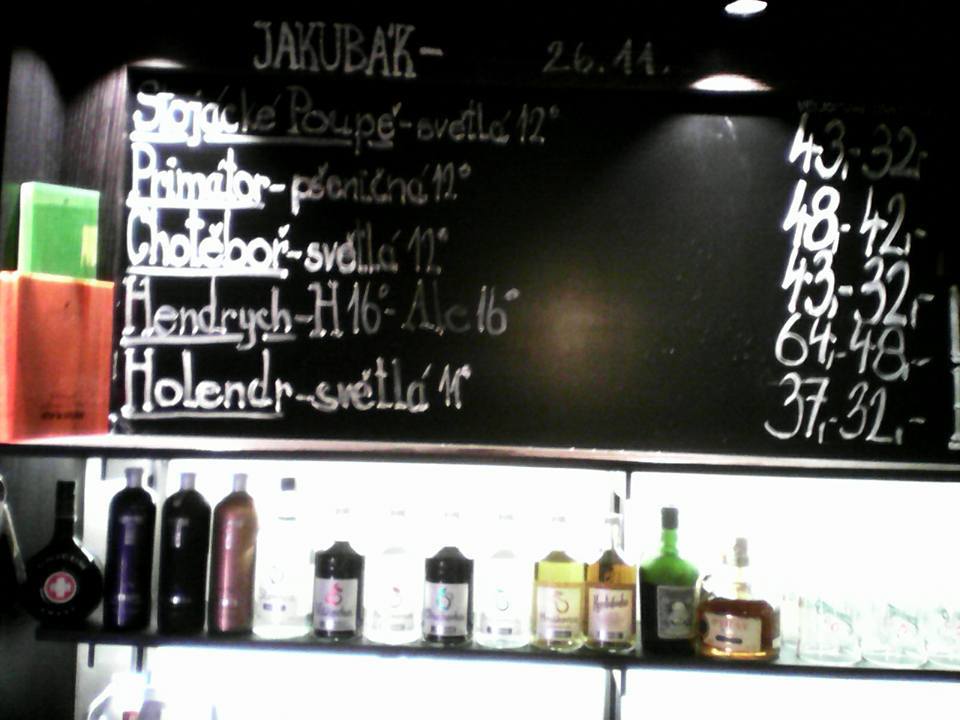 JAKUBÁK- 26.11.
Stojácké Poupě-světlá 12° 43,- 32,-
Primátor-pšeničná 12° 48,- 42,-
Chotěboř-světlá 12° 43,- 32,-
Hendrych-H16°-Ale 16° 64,- 48,-
Holendr-světlá 11° 37,- 32,-